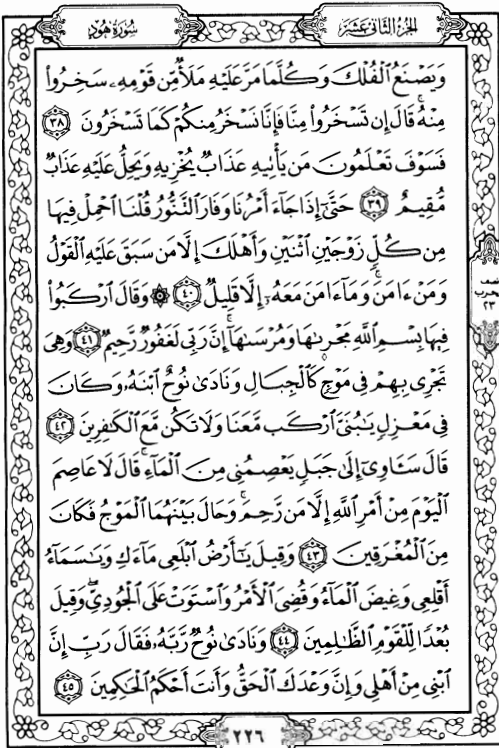 سُورَةُ هُودٍ
الجُزْءُ الثَّانِي عَشَرَ
وَيَصْنَعُ ٱلْفُلْكَ وَكُلَّمَا مَرَّ عَلَيْهِ مَلَأٌ مِّن قَوْمِهِۦ سَخِرُوا۟
مِنْهُ ۚ قَالَ إِن تَسْخَرُوا۟ مِنَّا فَإِنَّا نَسْخَرُ مِنكُمْ كَمَا تَسْخَرُونَ ٣٨
فَسَوْفَ تَعْلَمُونَ مَن يَأْتِيهِ عَذَابٌ يُخْزِيهِ وَيَحِلُّ عَلَيْهِ عَذَابٌ
مُّقِيمٌ ٣٩ حَتَّىٰٓ إِذَا جَآءَ أَمْرُنَا وَفَارَ ٱلتَّنُّورُ قُلْنَا ٱحْمِلْ فِيهَا
مِن كُلٍّ زَوْجَيْنِ ٱثْنَيْنِ وَأَهْلَكَ إِلَّا مَن سَبَقَ عَلَيْهِ ٱلْقَوْلُ
وَمَنْ ءَامَنَ ۚ وَمَآ ءَامَنَ مَعَهُۥٓ إِلَّا قَلِيلٌ ٤٠ ۞ وَقَالَ ٱرْكَبُوا۟
فِيهَا بِسْمِ ٱللَّهِ مَجْر۪ىٰهَا وَمُرْسَىٰهَآ ۚ إِنَّ رَبِّى لَغَفُورٌ رَّحِيمٌ ٤١ وَهِىَ
تَجْرِى بِهِمْ فِى مَوْجٍ كَٱلْجِبَالِ وَنَادَىٰ نُوحٌ ٱبْنَهُۥ وَكَانَ
فِى مَعْزِلٍ يَـٰبُنَىَّ ٱرْكَب مَّعَنَا وَلَا تَكُن مَّعَ ٱلْكَـٰفِرِينَ ٤٢
قَالَ سَـَٔاوِىٓ إِلَىٰ جَبَلٍ يَعْصِمُنِى مِنَ ٱلْمَآءِ ۚ قَالَ لَا عَاصِمَ
ٱلْيَوْمَ مِنْ أَمْرِ ٱللَّهِ إِلَّا مَن رَّحِمَ ۚ وَحَالَ بَيْنَهُمَا ٱلْمَوْجُ فَكَانَ
مِنَ ٱلْمُغْرَقِينَ ٤٣ وَقِيلَ يَـٰٓأَرْضُ ٱبْلَعِى مَآءَكِ وَيَـٰسَمَآءُ
أَقْلِعِى وَغِيضَ ٱلْمَآءُ وَقُضِىَ ٱلْأَمْرُ وَٱسْتَوَتْ عَلَى ٱلْجُودِىِّ ۖ وَقِيلَ
بُعْدًا لِّلْقَوْمِ ٱلظَّـٰلِمِينَ ٤٤ وَنَادَىٰ نُوحٌ رَّبَّهُۥ فَقَالَ رَبِّ إِنَّ
ٱبْنِى مِنْ أَهْلِى وَإِنَّ وَعْدَكَ ٱلْحَقُّ وَأَنتَ أَحْكَمُ ٱلْحَـٰكِمِينَ ٤٥
٢٣
٢٢٦